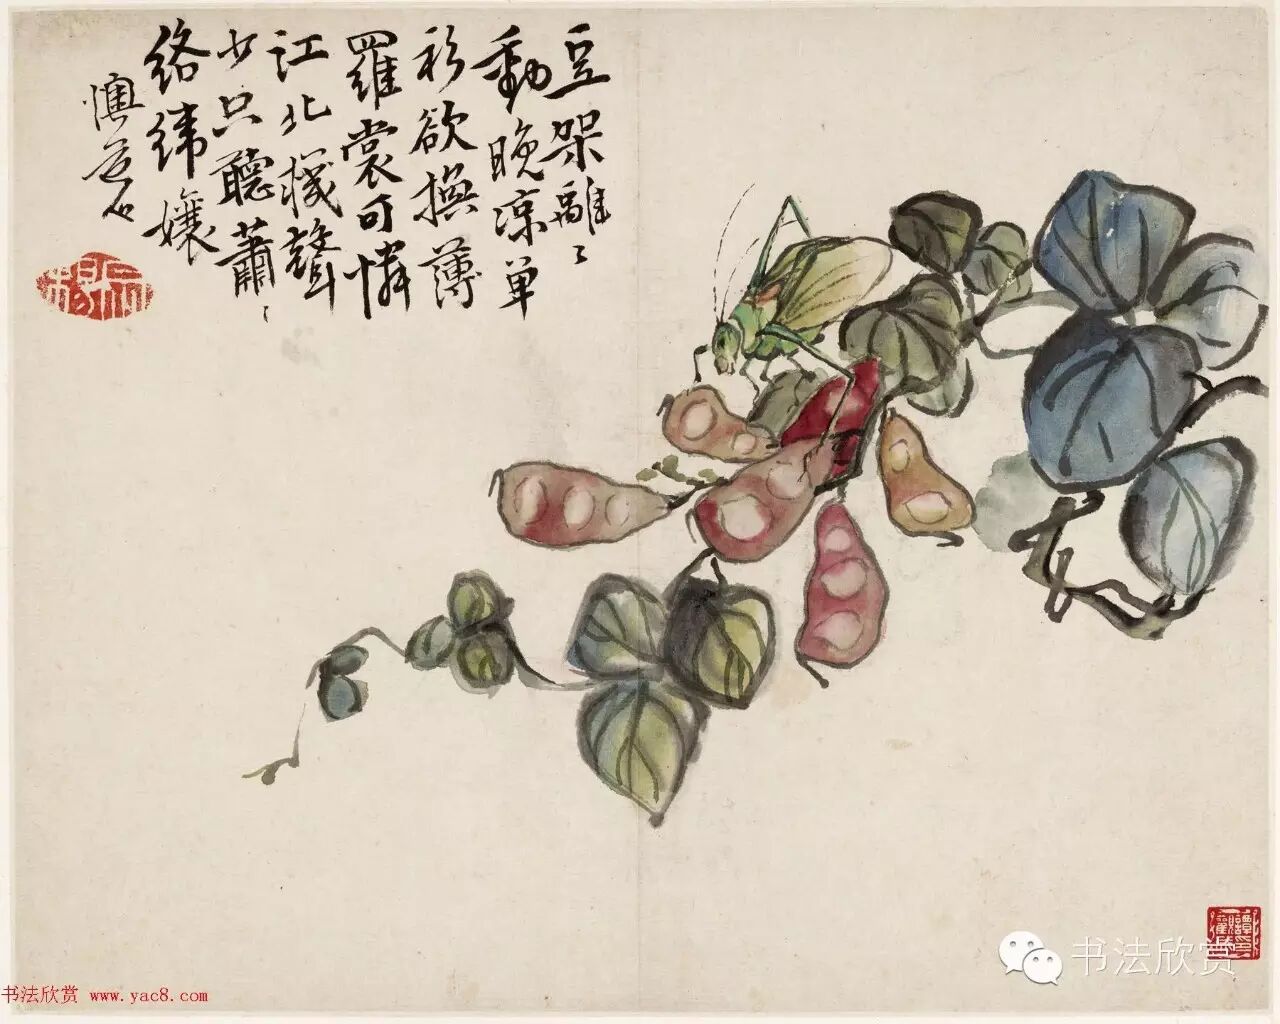 豆架離〻
動晚涼單
衫欲換薄
羅裳可憐
江北機聲
少只聽蕭〻
絡緯孃
懊道人
书法欣赏
书法欣赏 www.yac8.com